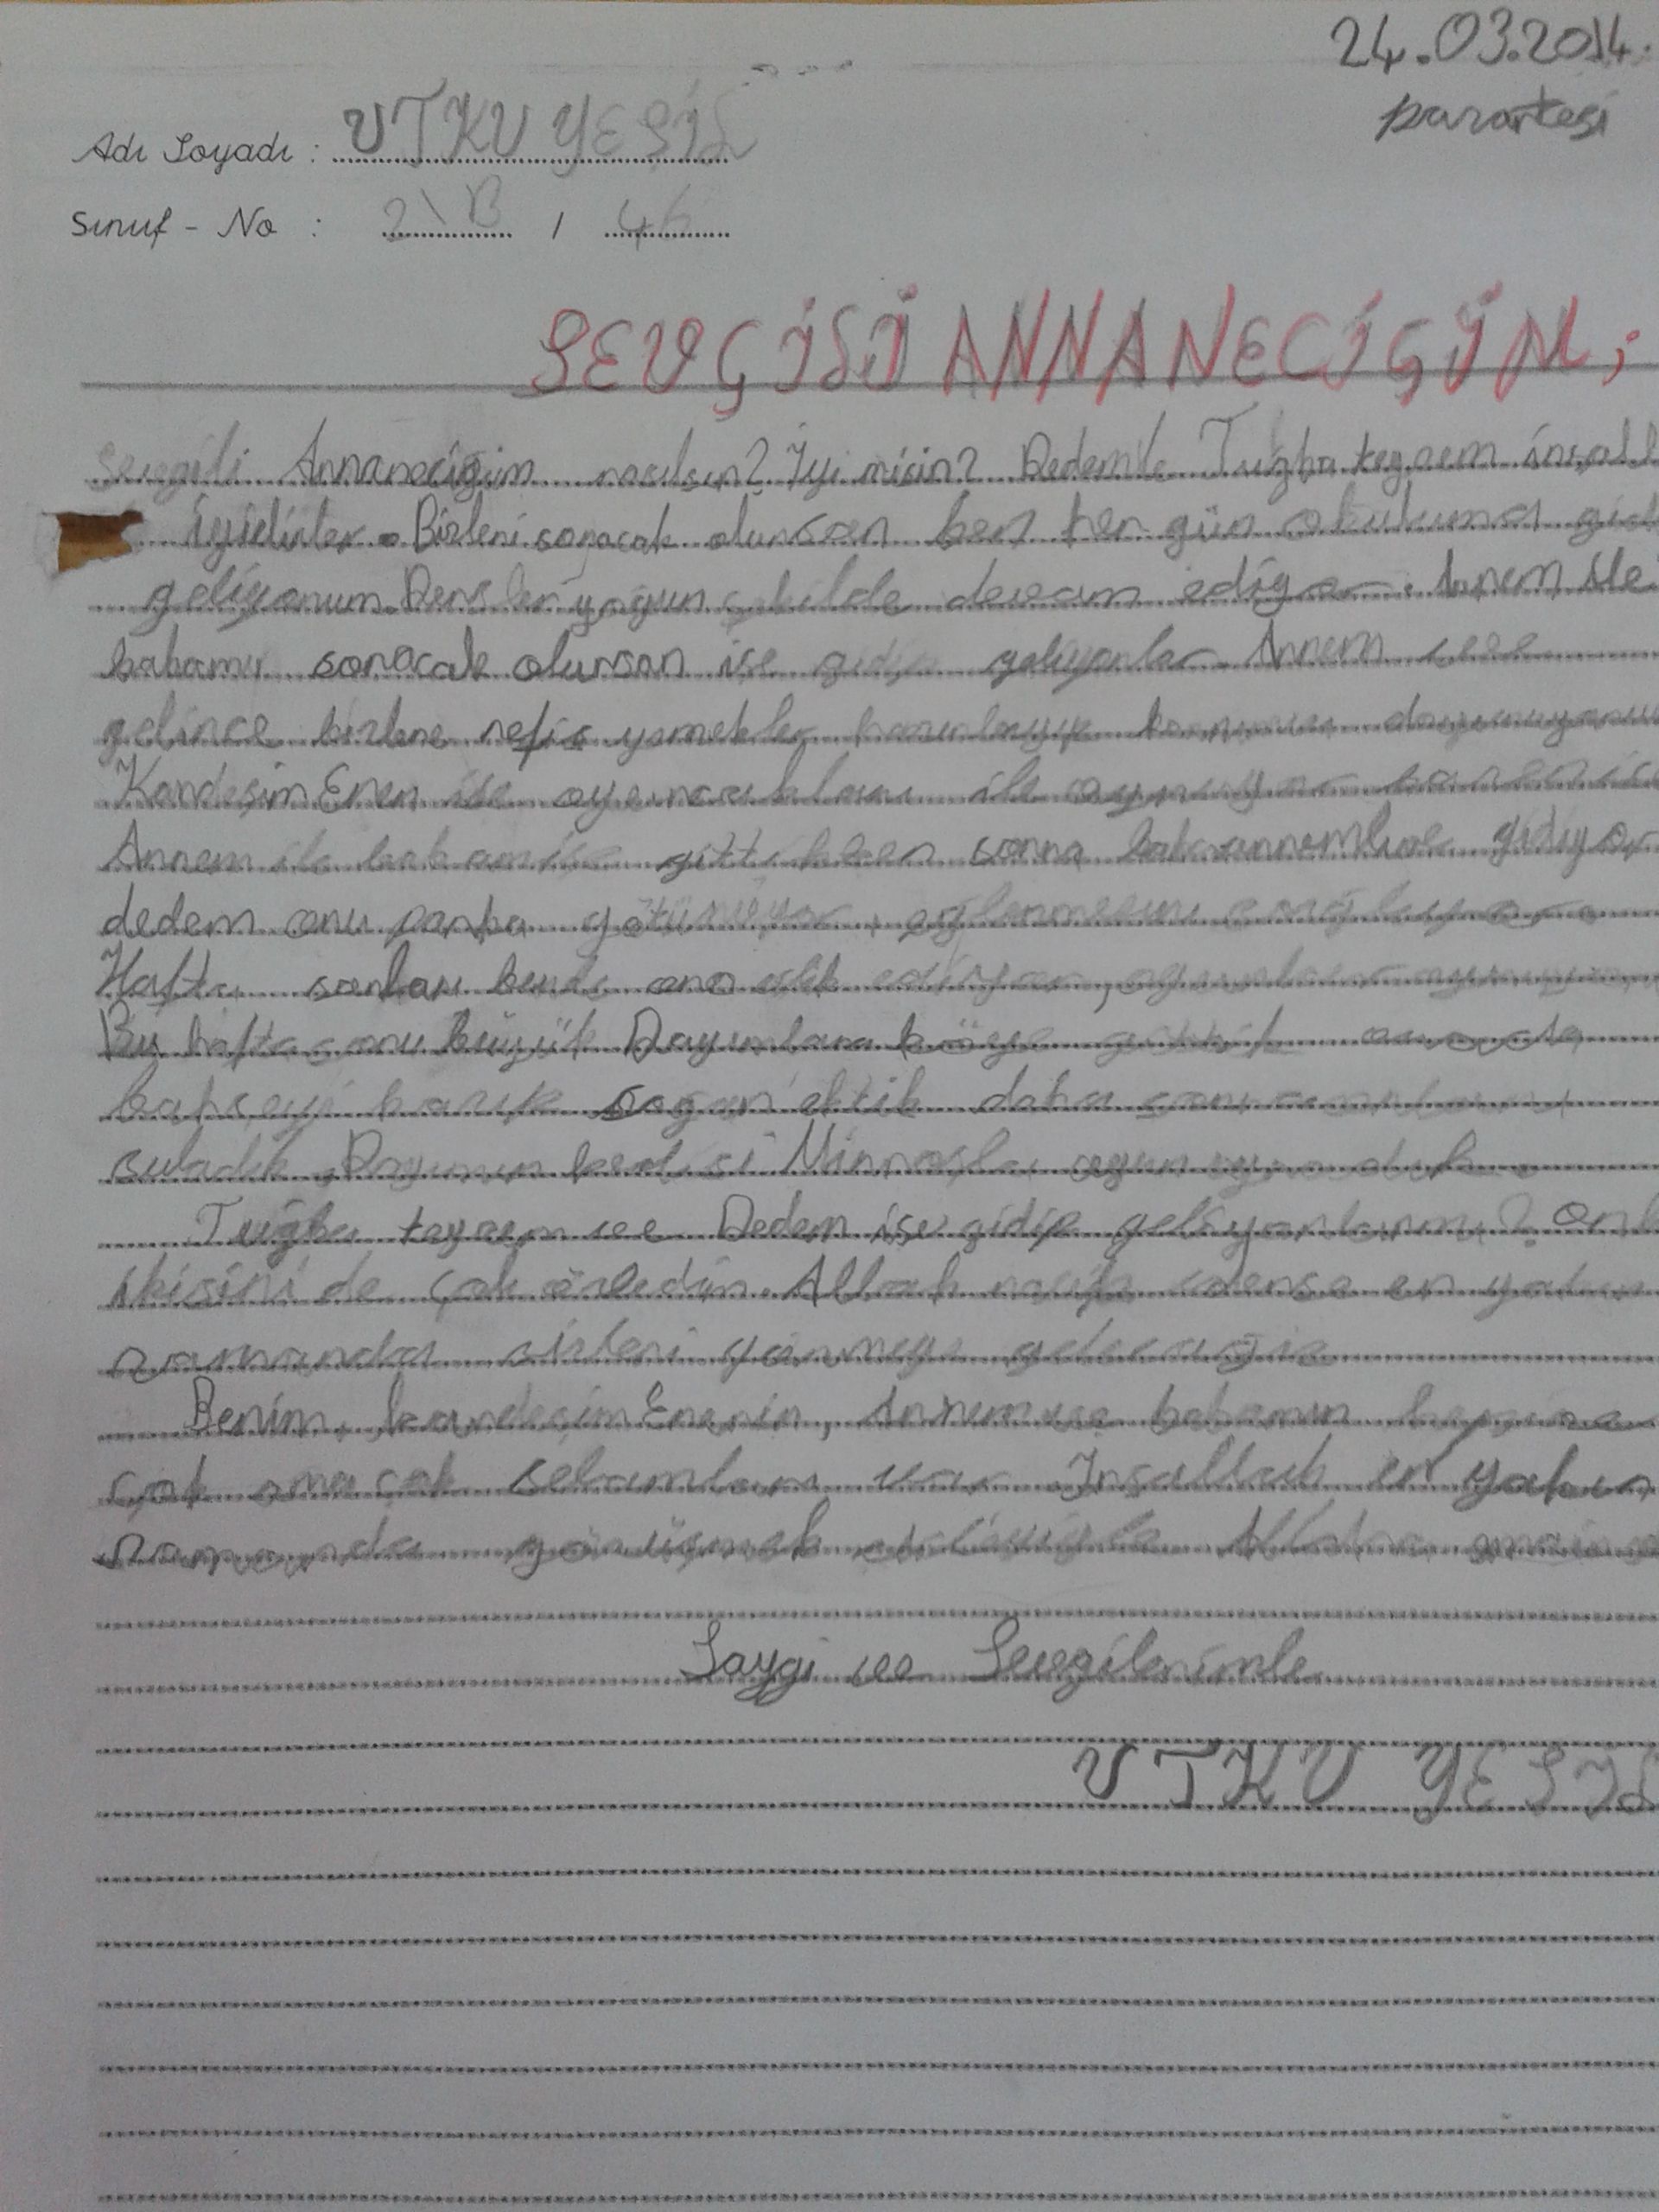 24.03.2014.
pazartesi
Adı Soyadı : UTKU YEŞİL
Sınıf - No : 2\B / 46
SEVGİLİ ANNANECİĞİM;
Sevgili Annaneciğim nasılsın? İyi misin? Dedemle Tuğba teyzem inşall
iyidirler. Bizleri soracak olursan ben her gün okuluma gid
geliyorum. Dersler yoğun şekilde devam ediyor. Annem ile
babamı soracak olursan işe gidip geliyorlar. Annem eve
gelince bizlere nefis yemekler hazırlayıp karnımızı doyuruyoruz
Kardeşim Eren ise oyuncakları ile oynuyor
Annem ile babam işe gittikten sonra babaannemlere gidiyor
dedem onu parka götürüyor, eğlenmesini sağlıyor.
Hafta sonları bende ona eşlik ediyor, oyunlar oynuyor
Bu hafta sonu büyük Dayımlara köye gittik orada
bahçeyi kazıp soğan ektik daha sonra
suladık. Dayımın kedisi Minnoşla oyun oynadık.
Tuğba teyzem ve Dedem işe gidip geliyorlarmı? Onl
ikisini de çok özledim. Allah nasip ederse en yakın
zamanda sizleri görmeye geleceğiz
Benim, kardeşim Erenin, Annem ve babamın hepinize
çok ama çok selamları var. İnşallah en yakın
zamanda görüşmek dileğiyle Allaha
Saygı ve Sevgilerimle
UTKU YEŞİL